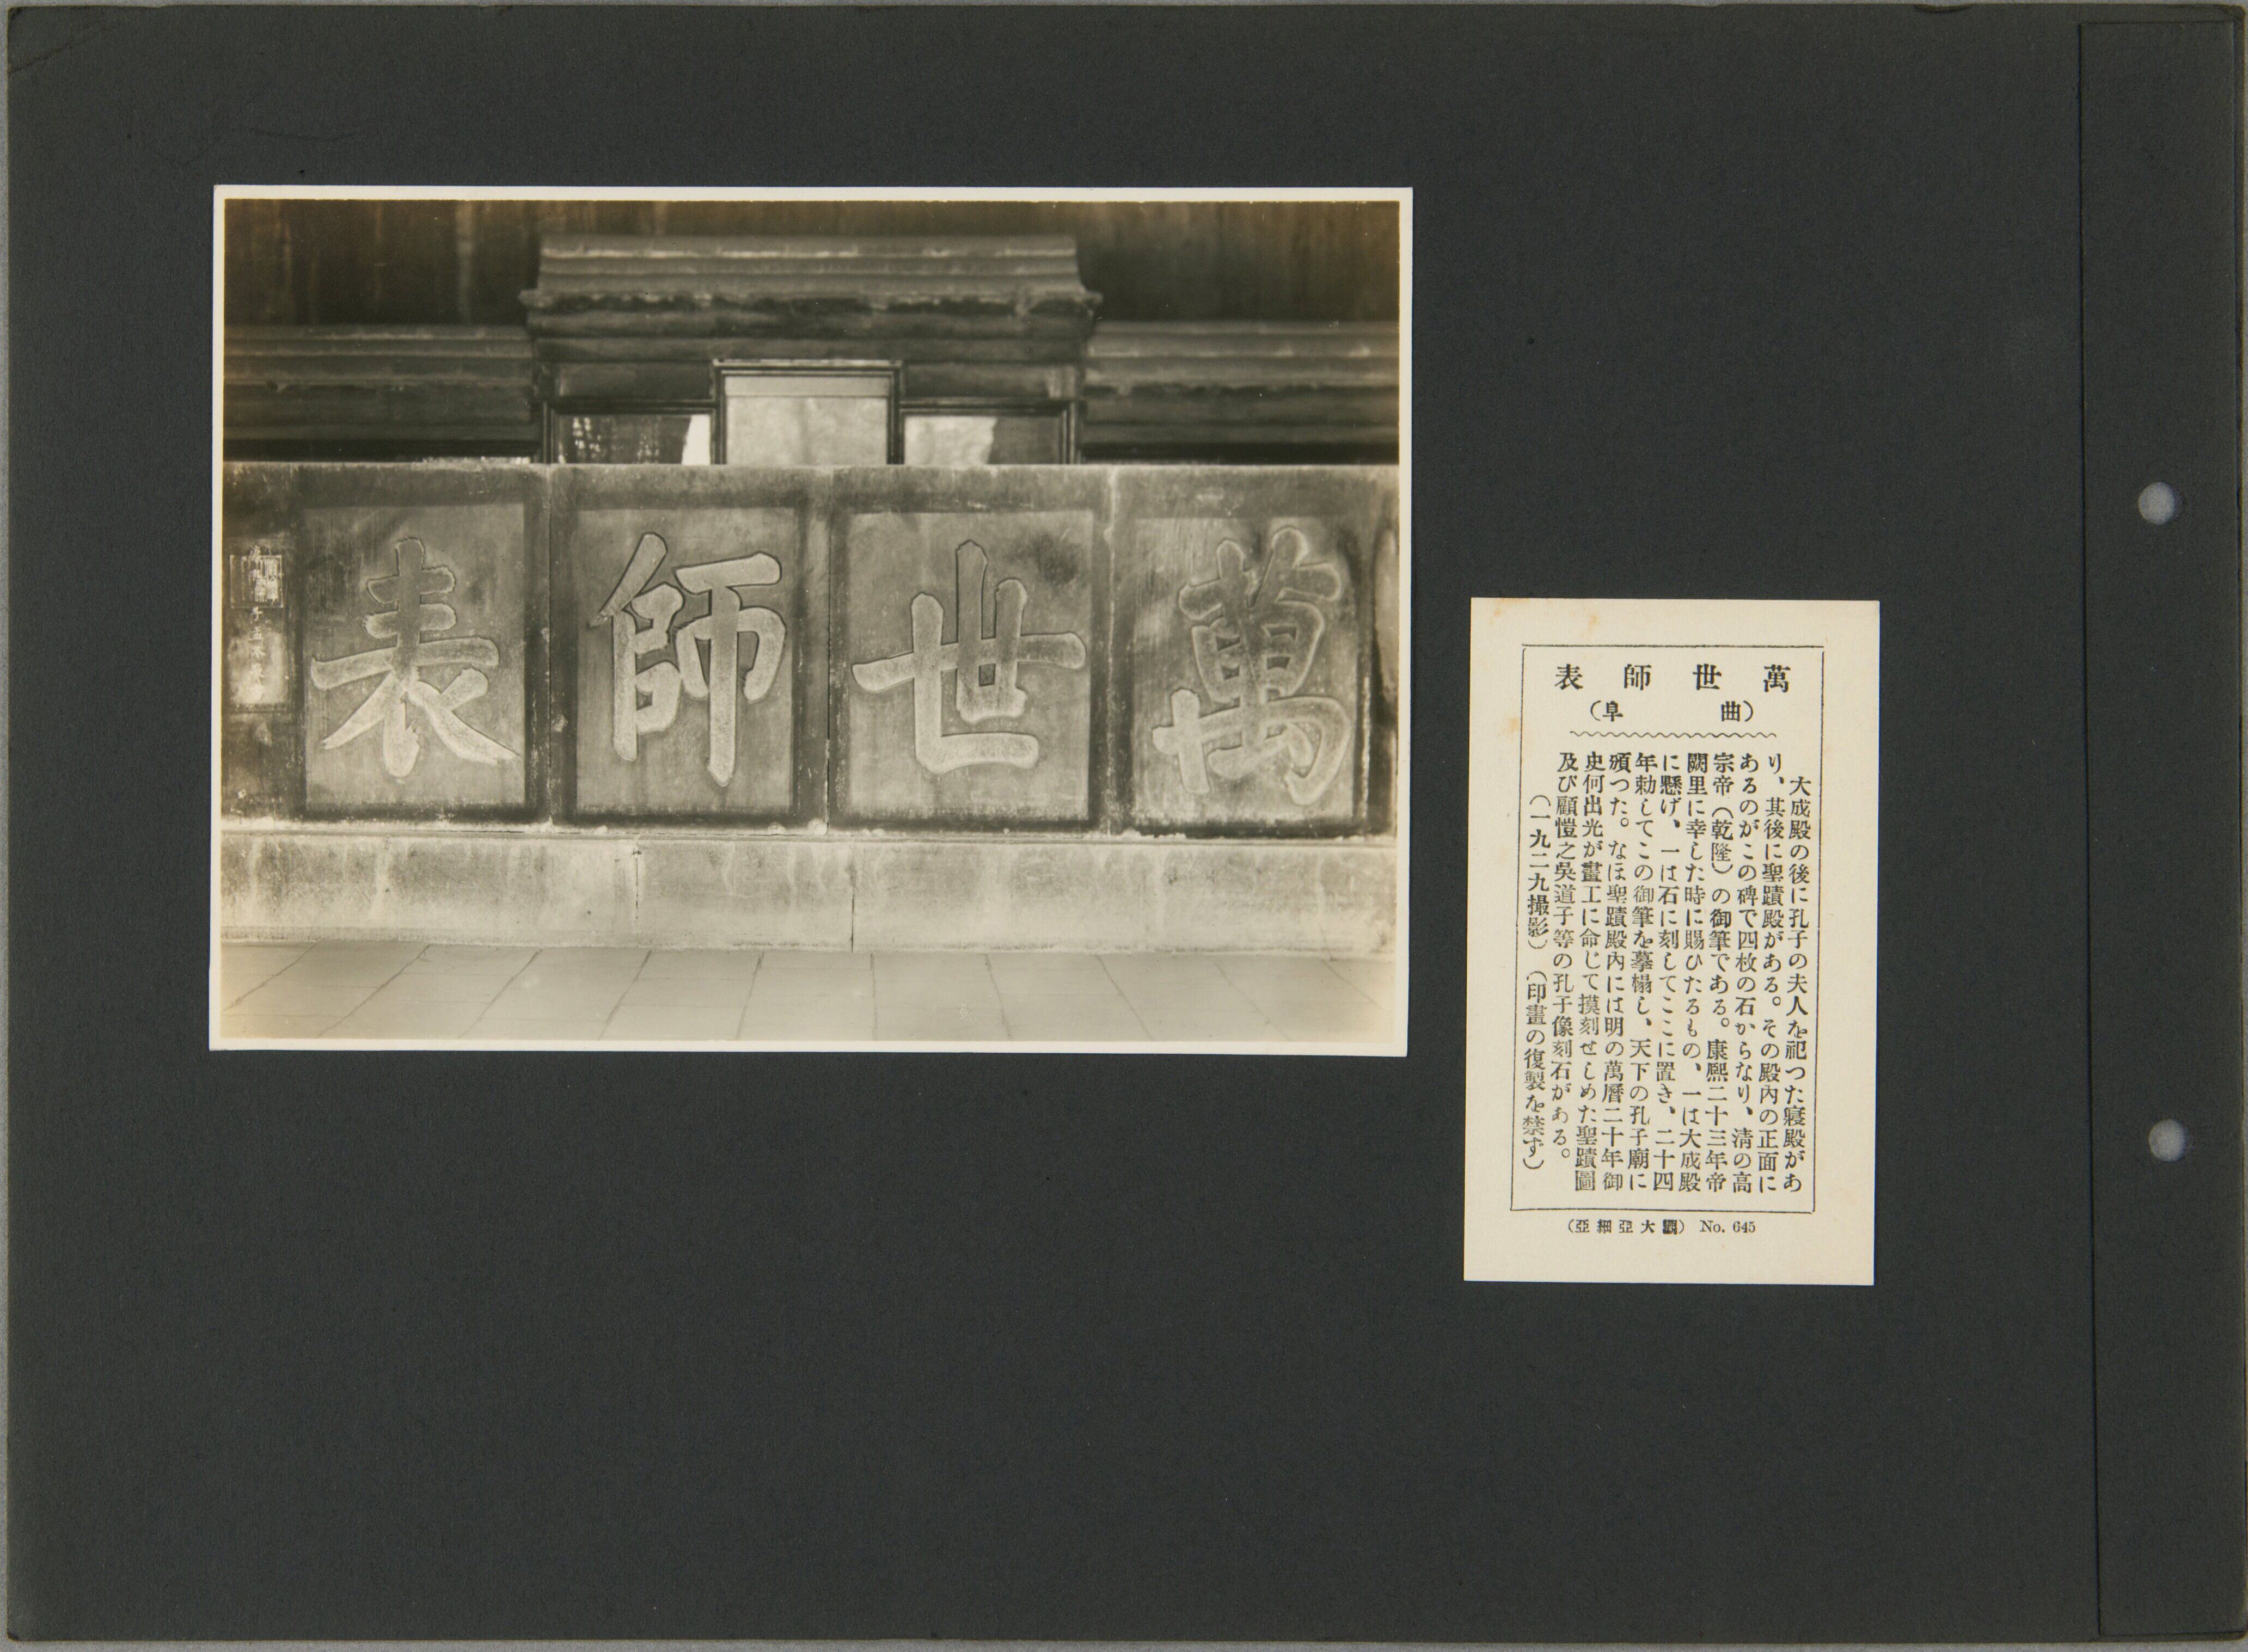 萬世師表
萬世師表
（曲阜）
大成殿の後に孔子の夫人を祀つた寢殿があ
り、其後に聖蹟殿がある。その殿內の正面に
あるのがこの碑で四枚の石からなり、淸の高
宗帝（乾隆）の御筆である。康熙二十三年帝
闕里に幸した時に賜ひたるもの、一は大成殿
に懸げ、一は石に刻してここに置き、二十四
年勅してこの御筆を摹榻し、天下の孔子廟に
頒つた。なほ聖蹟殿內には明の萬曆二十年御
史何出光が畫工に命じて摸刻せしめた聖蹟圖
及び顧愷之吳道子等の孔子像刻石がある。
（一九二九撮影）（印畫の復製を禁ず）
（亞細亞大觀） No. 645